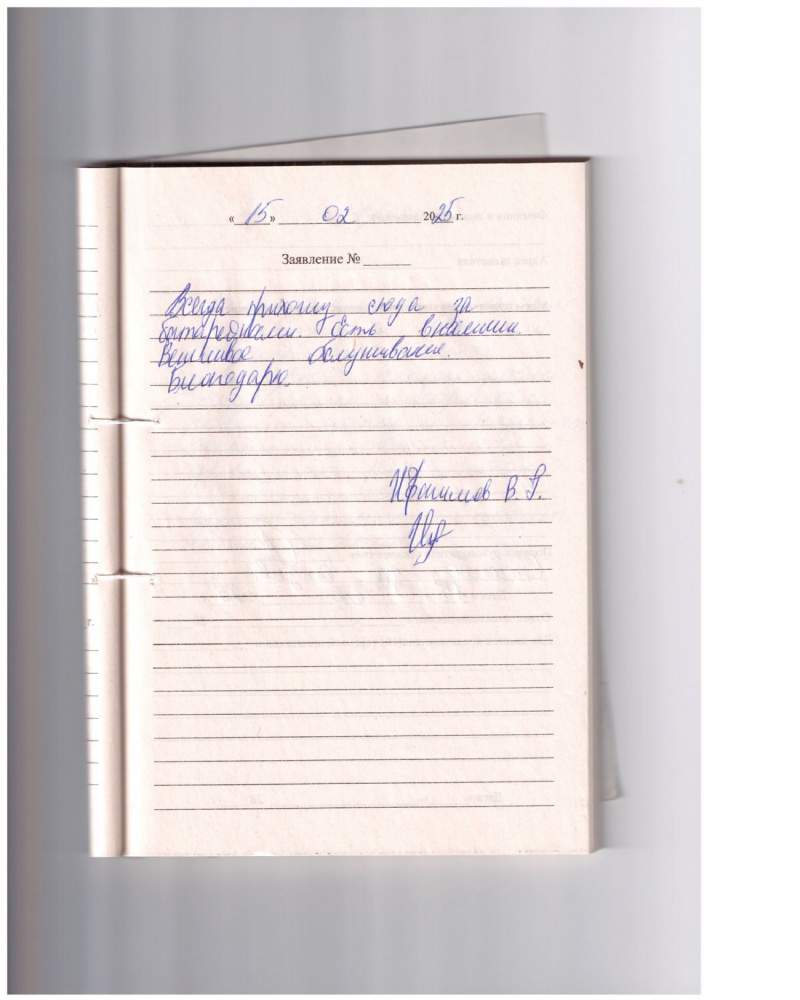 «15» 02 2025 г.
Заявление №
Всегда прихожу сюда за
батарейками. Есть в наличии.
Вежливое обслуживание.
Благодарю.
В. Г.